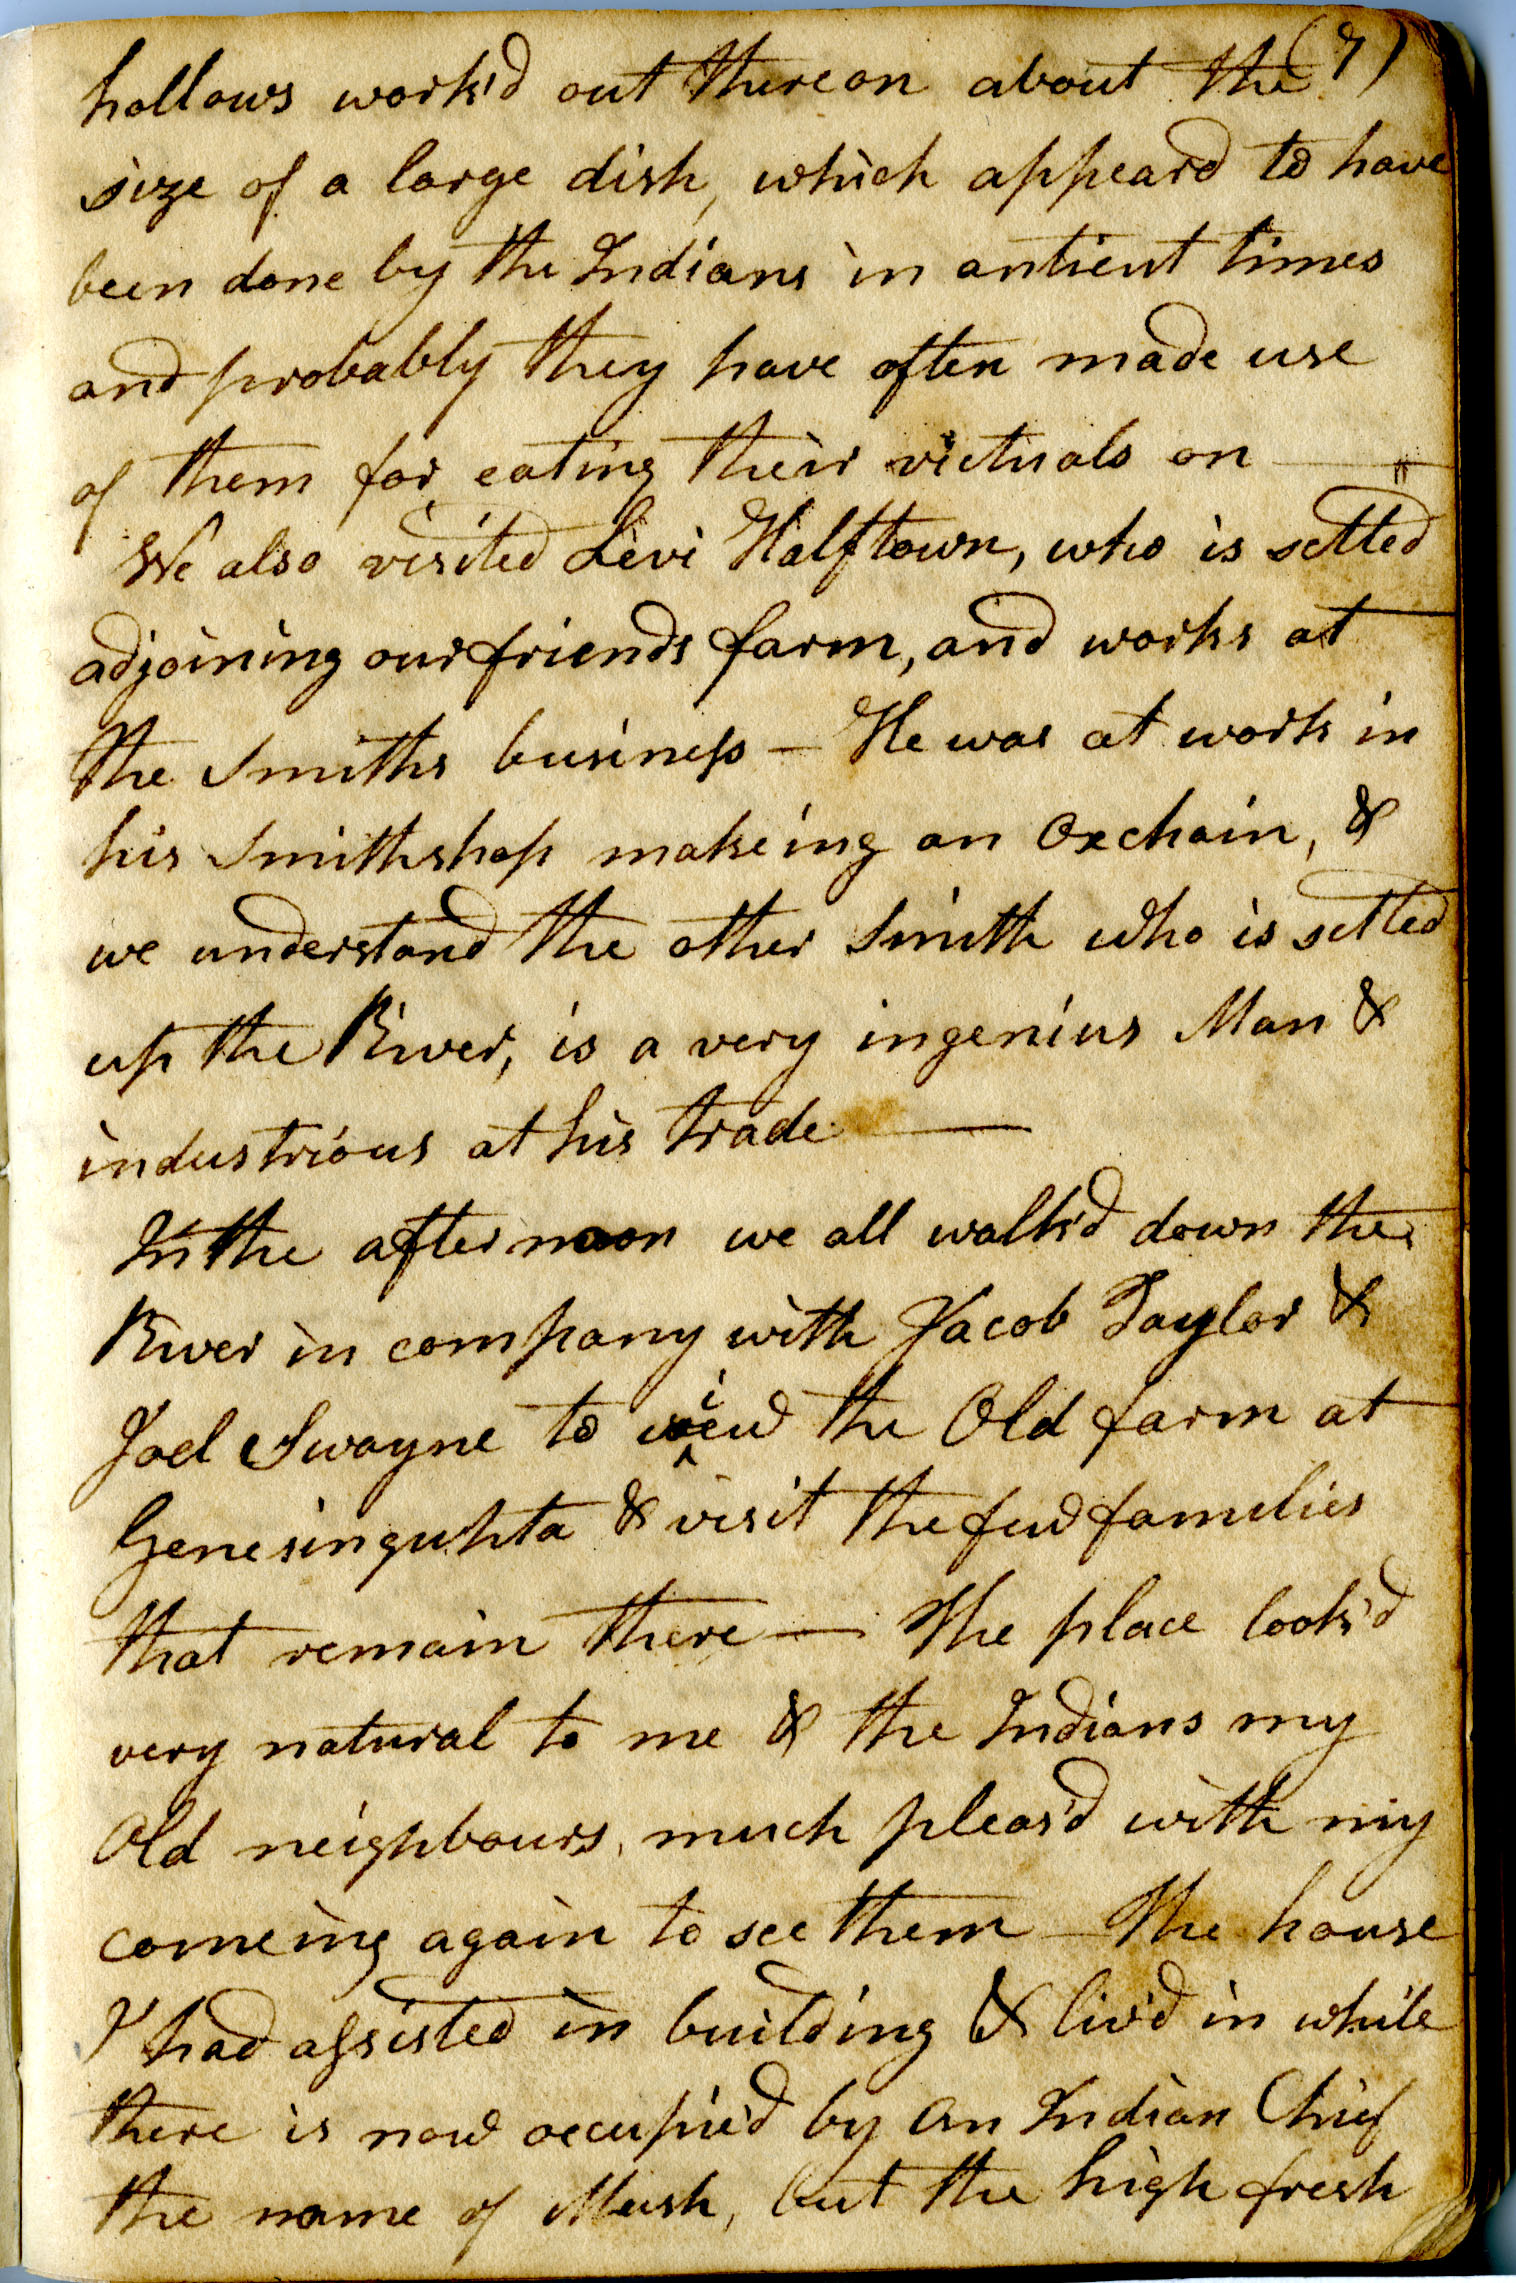 (7)
hollows work'd out thereon about the
size of a large dish, which appeard to have
been done by the Indians in antient times
and probably they have often made use
of them for eating their victuals on —
We also visited Levi Halftown, who is settled
adjoining our friends farm, and works at
the Smiths business — He was at work in
his Smithshop makeing an Oxchain, &
we understand the other Smith who is settled
up the River, is a very ingenius Man &
industrious at his trade —
In the afternoon we all walk'd down the
River in company with Jacob Taylor &
Joel Swayne to view the Old farm at
Genesinguhta & visit the few families
that remain there — The place look'd
very natural to me & the Indians my
Old neighbours, much pleas'd with my
comeing again to see them — The house
I had assisted in building & liv'd in while
there is now occupied by an Indian Chief
the name of Mush, but the high fresh